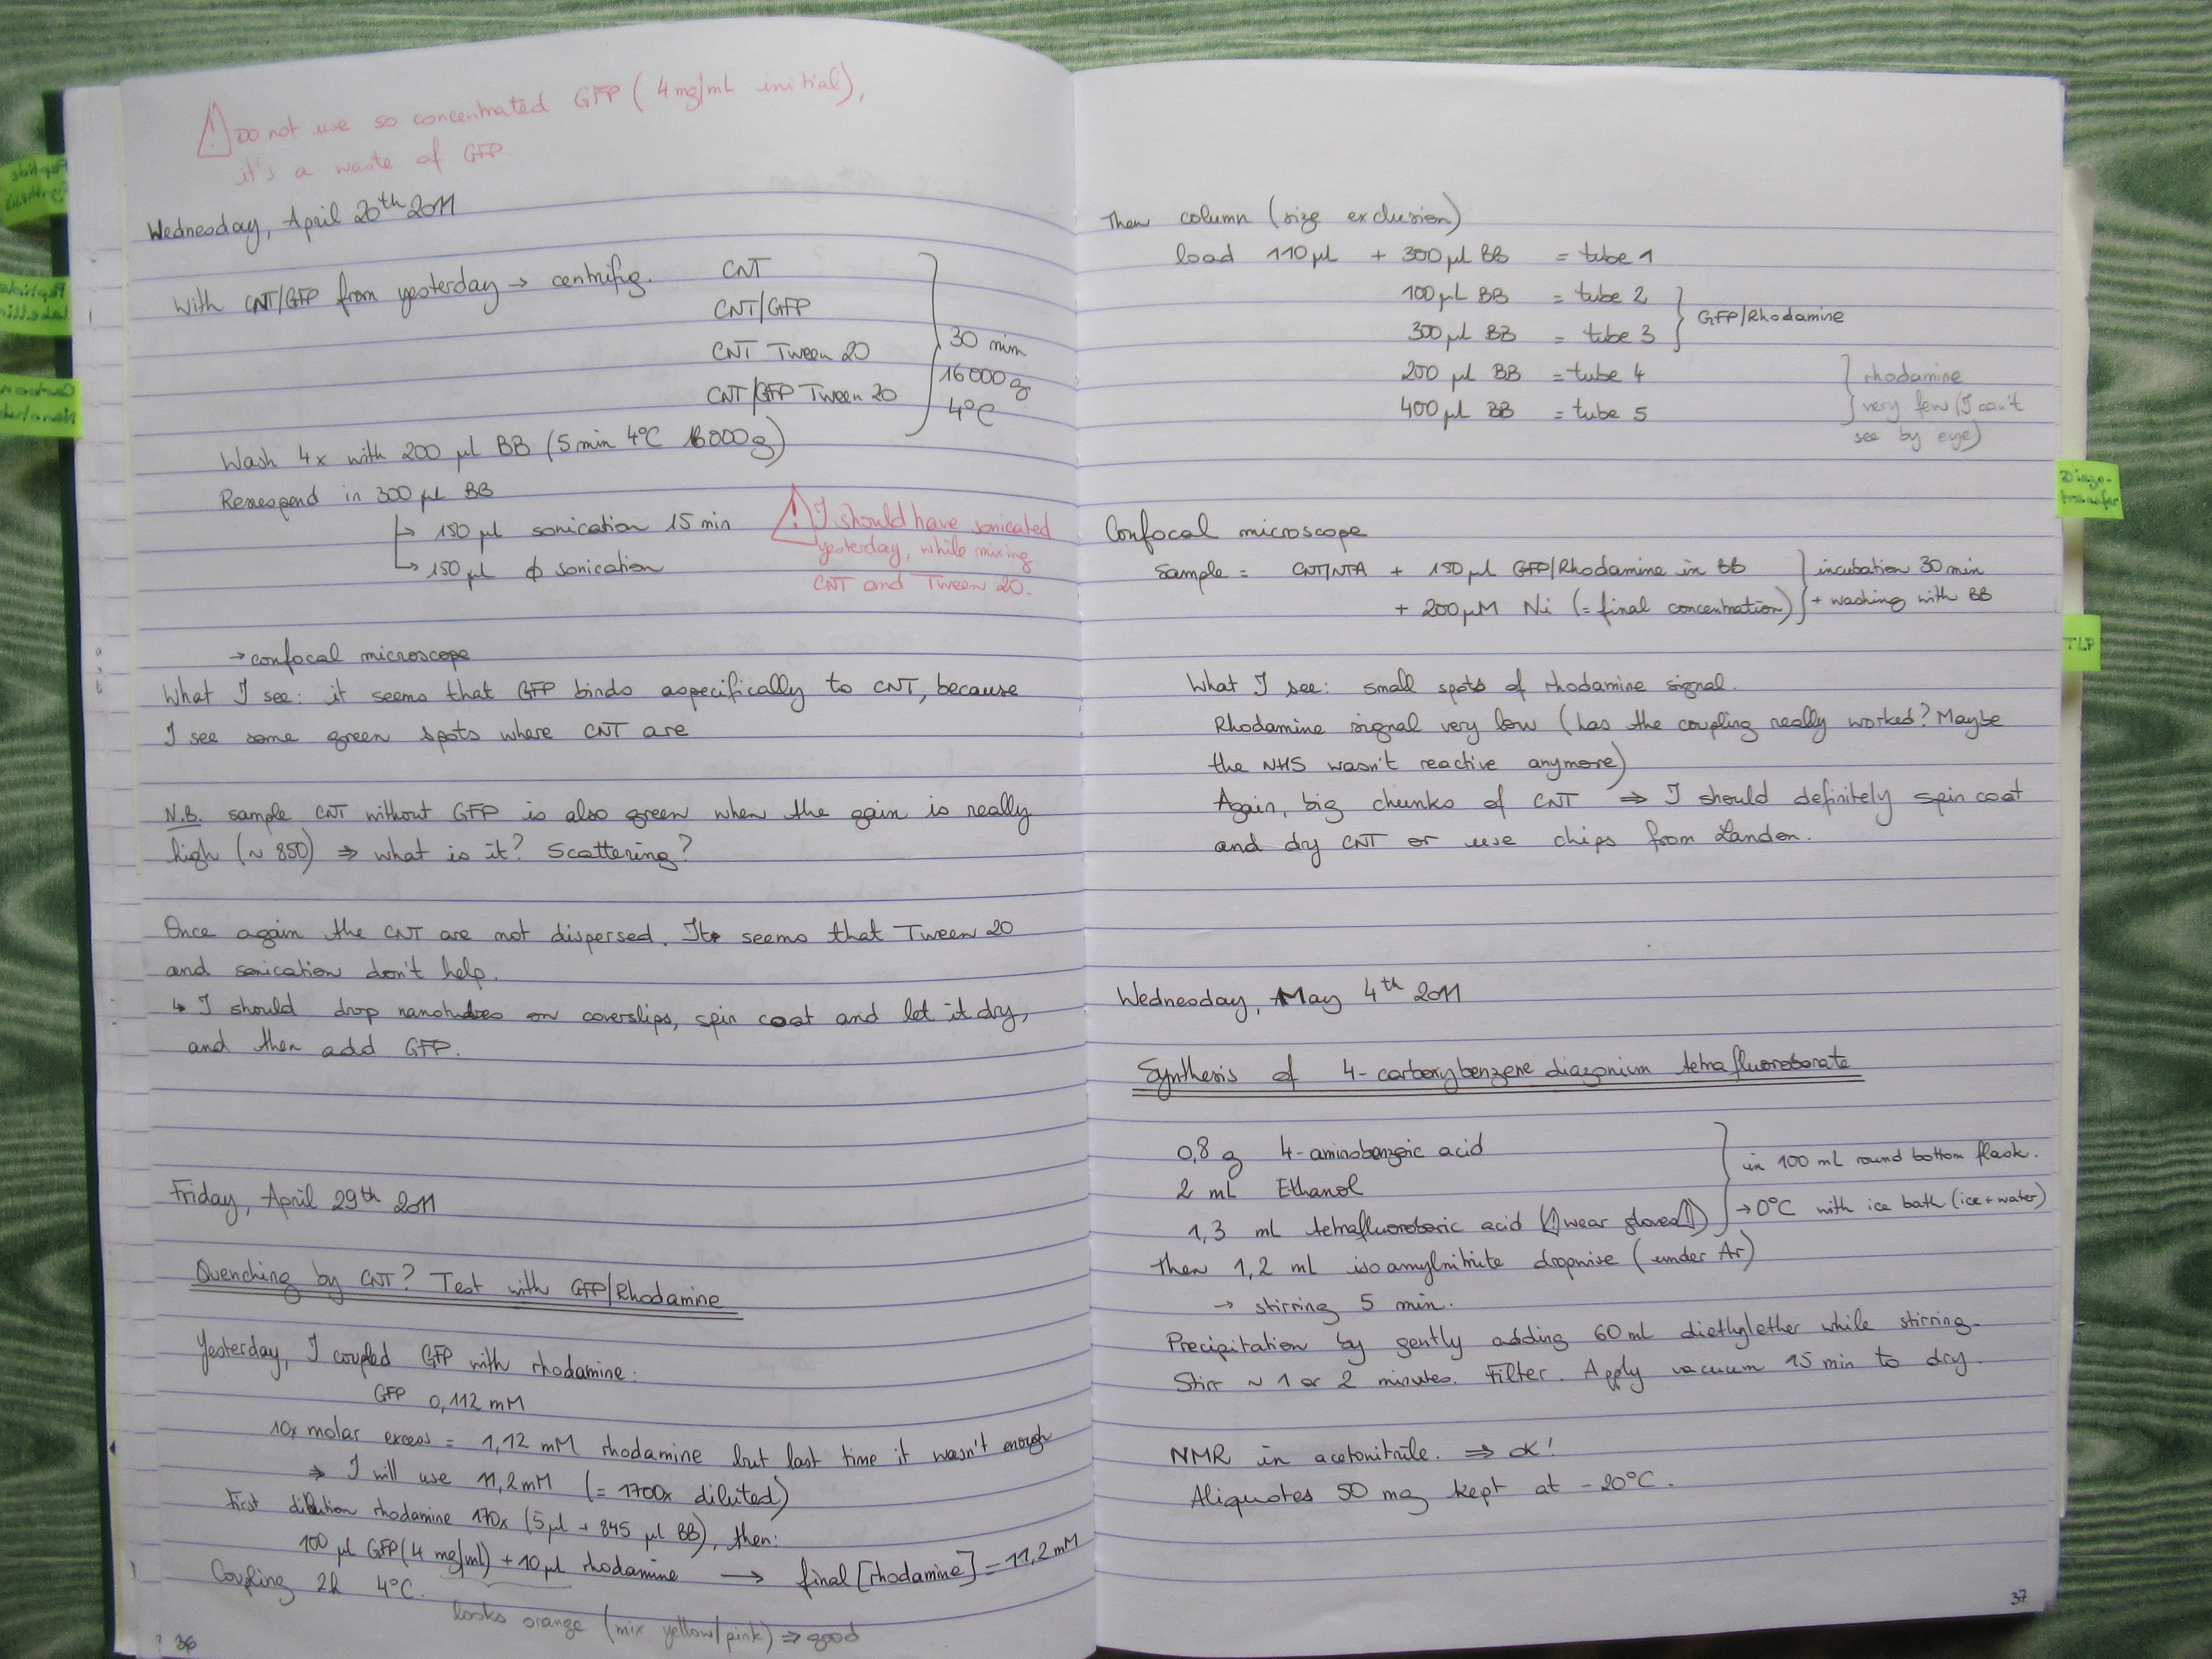 ⚠ Do not use so concentrated GFP (4mg/mL initial),
it's a waste of GFP
Wednesday, April 20th 2011
With CNT/GFP from yesterday → centrifug. CNT
CNT/GFP
CNT Tween 20
CNT/GFP Tween 20
30 min
16000g
4°C
Wash 4x with 200 µl BB (5min 4°C 16000g)
Resuspend in 300 µl BB
↳ 150 µl sonication 15 min
↳ 150 µl ϕ sonication
⚠ I should have sonicated
yesterday, while mixing
CNT and Tween 20.
→ confocal microscope
What I see: it seems that GFP binds aspecifically to CNT, because
I see some green spots where CNT are
N.B. sample CNT without GFP is also green when the gain is really
high (~ 850) ⇒ what is it? Scattering?
Once again the CNT are not dispersed. It seems that Tween 20
and sonication don't help.
↳ I should drop nanotubes on coverslips, spin coat and let it dry,
and then add GFP.
Friday, April 29th 2011
Quenching by CNT? Test with GFP/Rhodamine
Yesterday, I coupled GFP with rhodamine:
GFP 0,112 mM
10x molar excess = 1,12 mM rhodamine but last time it wasn't enough
⇒ I will use 11,2mM (= 1700x diluted)
First dilution rhodamine 170x (5µl + 845 µl BB), then:
100 µl GFP (4 mg/ml) + 10µl rhodamine → final [rhodamine] = 11,2 mM
Coupling 2h 4°C.
looks orange (mix yellow/pink) ⇒ good
36
Then column (size exclusion)
load 110µl + 300µl BB = tube 1
100µL BB = tube 2
300µl BB = tube 3
GFP/Rhodamine
200 µl BB = tube 4
400µl BB = tube 5
rhodamine
very few (I can't
see by eye)
Confocal microscope
Sample = CNT/NTA + 150µl GFP/Rhodamine in BB
+ 200µM Ni (= final concentration)
incubation 30 min
+ washing with BB
What I see: small spots of rhodamine signal.
Rhodamine signal very low (has the coupling really worked? Maybe
the NHS wasn't reactive anymore)
Again, big chunks of CNT ⇒ I should definitely spin coat
and dry CNT or use chips from Landon.
Wednesday, May 4th 2011
Synthesis of 4-carboxybenzene diazonium tetrafluoroborate
0,8 g 4-aminobenzoic acid
2 mL Ethanol
1,3 mL tetrafluoroboric acid (⚠wear gloves⚠)
in 100 mL round bottom flask.
→ 0°C with ice bath (ice + water)
then 1,2 ml isoamylnitrite dropwise (under Ar)
→ stirring 5 min.
Precipitation by gently adding 60ml diethylether while stirring.
Stirr ~ 1 or 2 minutes. Filter. Apply vacuum 15 min to dry.
NMR in acetonitrile. ⇒ ok!
Aliquotes 50 mg kept at -20°C.
37
Diazo-
transfer
TLP